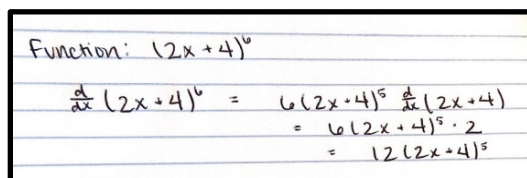 Function: (2x + 4)⁶
d/dx (2x + 4)⁶ = 6(2x + 4)⁵ d/dx (2x + 4)
= 6(2x + 4)⁵ · 2
= 12(2x + 4)⁵